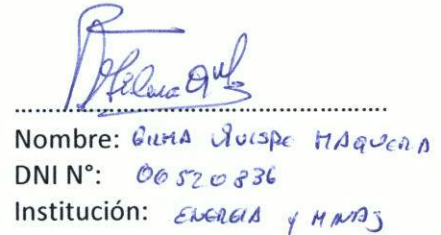 Nombre: GILMA QUISPE MAQUERA
DNI N°: 06520836
Institución: ENERGIA y MINAS